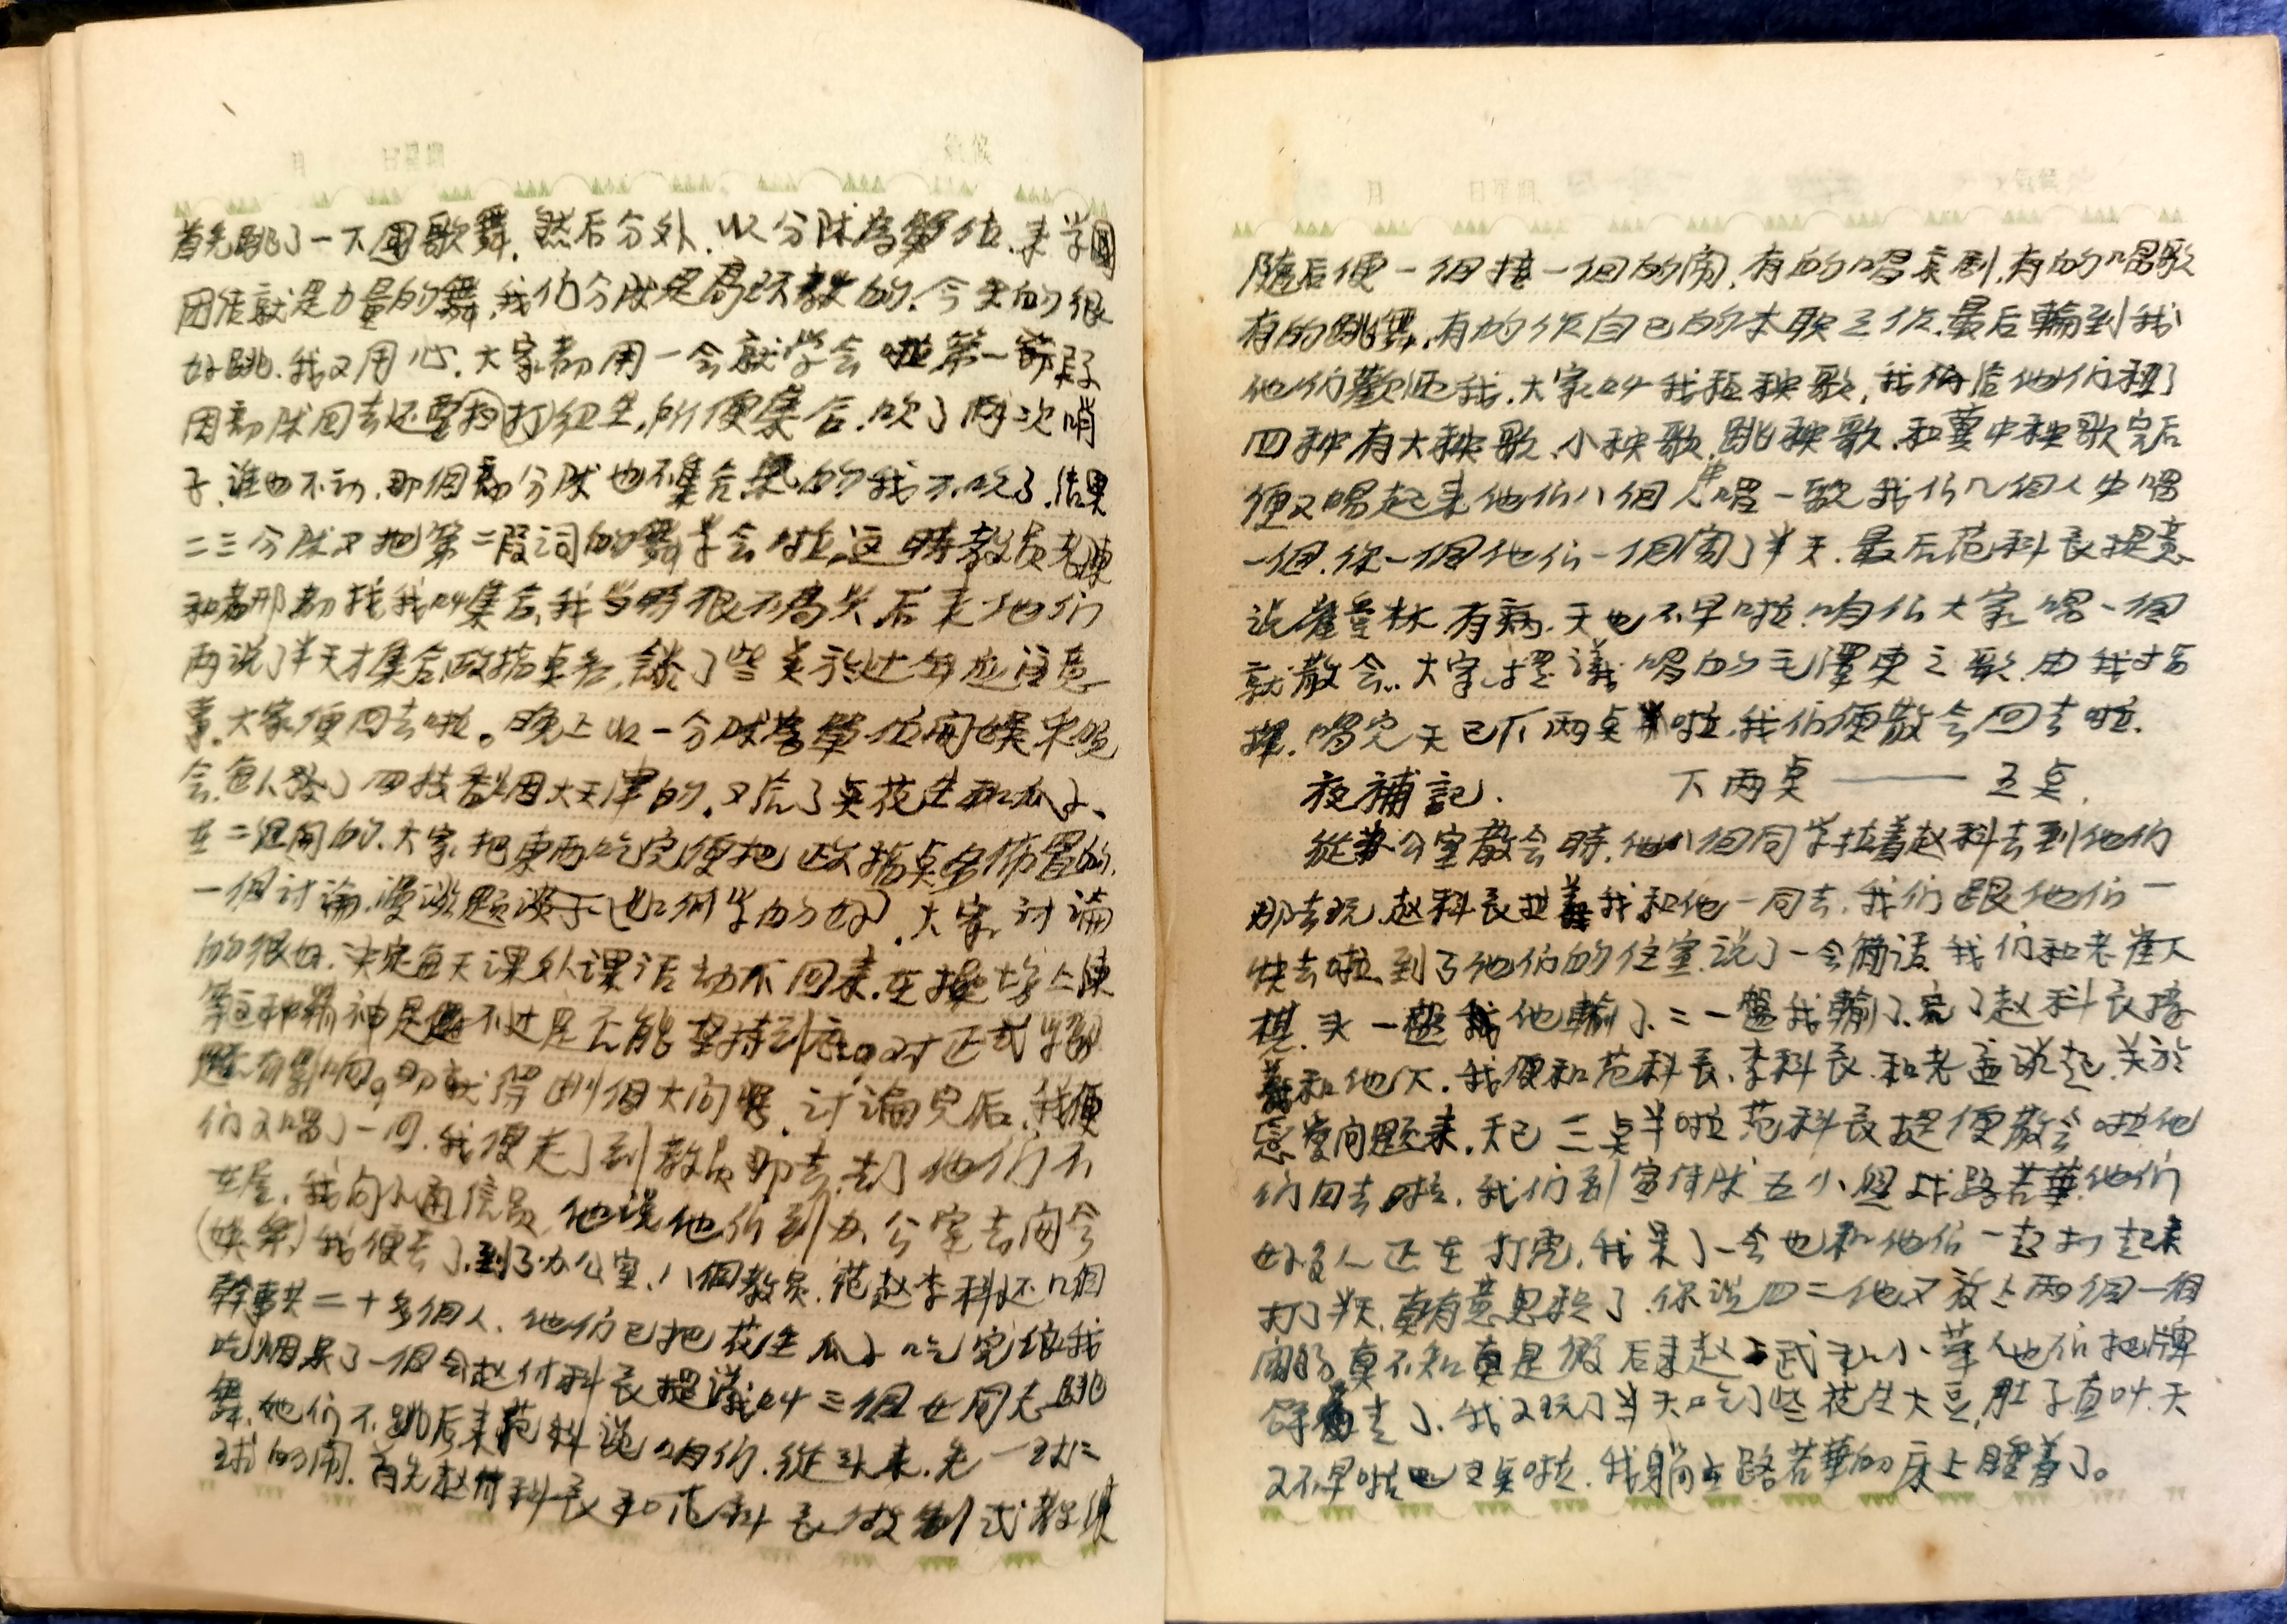 月 日星期 氣候
首先跳了一下团歌舞，然后分外，以分隊為單位，来学团
团结就是力量的舞，我们分隊是高环教的，今天的很
好跳，我又用心，大家都用一会就学会啦第一節段
因部隊回去还要打红生，所便集合，吹了两次哨
子，谁也不动，那個部分隊也不集合，气的我不吹了，结果
二三分隊又把第二段词的舞学会啦，这時教员老陳
和老邢都找我叫集合，我当時很不高兴，后来他们
两说了半天才集合，政指点名，談了些关於过年应注意
事，大家便回去啦。晚上以一分隊為單位開娱乐晚
会，每人發了四枝香烟大天津的，又给了点花生和瓜子、
在二组開的，大家把東西吃完便把政指点名佈置的，
一個讨論，漫談題 如何学的好，大家讨論
的很好，决定每天课外课活动不回来，在操场上陳
等這种精神是 不过是否能坚持到底。对正式学習
有影响。 得 個大问 ，讨論完后，我便
们又唱了一回，我便走了到教员那去，去了他们不
在屋，我问小通信员，他说他们到办公室去開会
(娱乐)我便去了，到了办公室，八個教员，范赵李科还几個
幹事共二十多個人，他们已把花生瓜子吃完给我
吃烟呆了一個会赵付科長提議叫三個女同志跳
舞，她们不跳后来范科说咱们，從头来，先一对二
对的闹，首先赵付科長和范科長做制式教练
月 日星期 氣候
随后便一個接一個的闹，有的唱京剧，有的唱歌
有的跳舞，有的作自己的本职工作，最后輪到我
他们歡迎我，大家叫我扭秧歌，我便给他们扭了
四种有大秧歌、小秧歌、跳秧歌、和冀中秧歌完后
便又唱起来他们八個人中唱一歌我们几個人中唱
一個，你一個他们一個闹了半天，最后范科長提意
说崔 林有病，天也不早啦，咱们大家唱一個
就散会，大家提議唱的毛澤東之歌，由我指
揮，唱完天已下两点半啦，我们便散会回去啦，
夜補記. 下两点 —— 五点，
從办公室散会時，他八個同学拉着赵科去到他们
那去玩，赵科長拉着我和他一同去，我们跟他们一
快去啦，到了他们的住室，说了一会闹话，我们和老崔下
棋，头一盤 他輸了，二一盤我輸了，完了赵科長接
着和他下，我便和范科長、李科長、和老孟谈起，关於
恋爱问题来，天已三点半啦范科長提便散会啦他
们回去啦，我们到宣传隊五小组找路若華，他们
好多人正在打虎，我呆了一会也和他们一起打起来
打了半天，真有意思极了，你说四二他又放上两個一個
闹的真不知真是假后来赵 武和小華他们把牌
夺着走了，我又玩了半天吃了些花生大豆，肚子直叫，天
又不早啦已五点啦，我躺在路若華的床上睡着了。